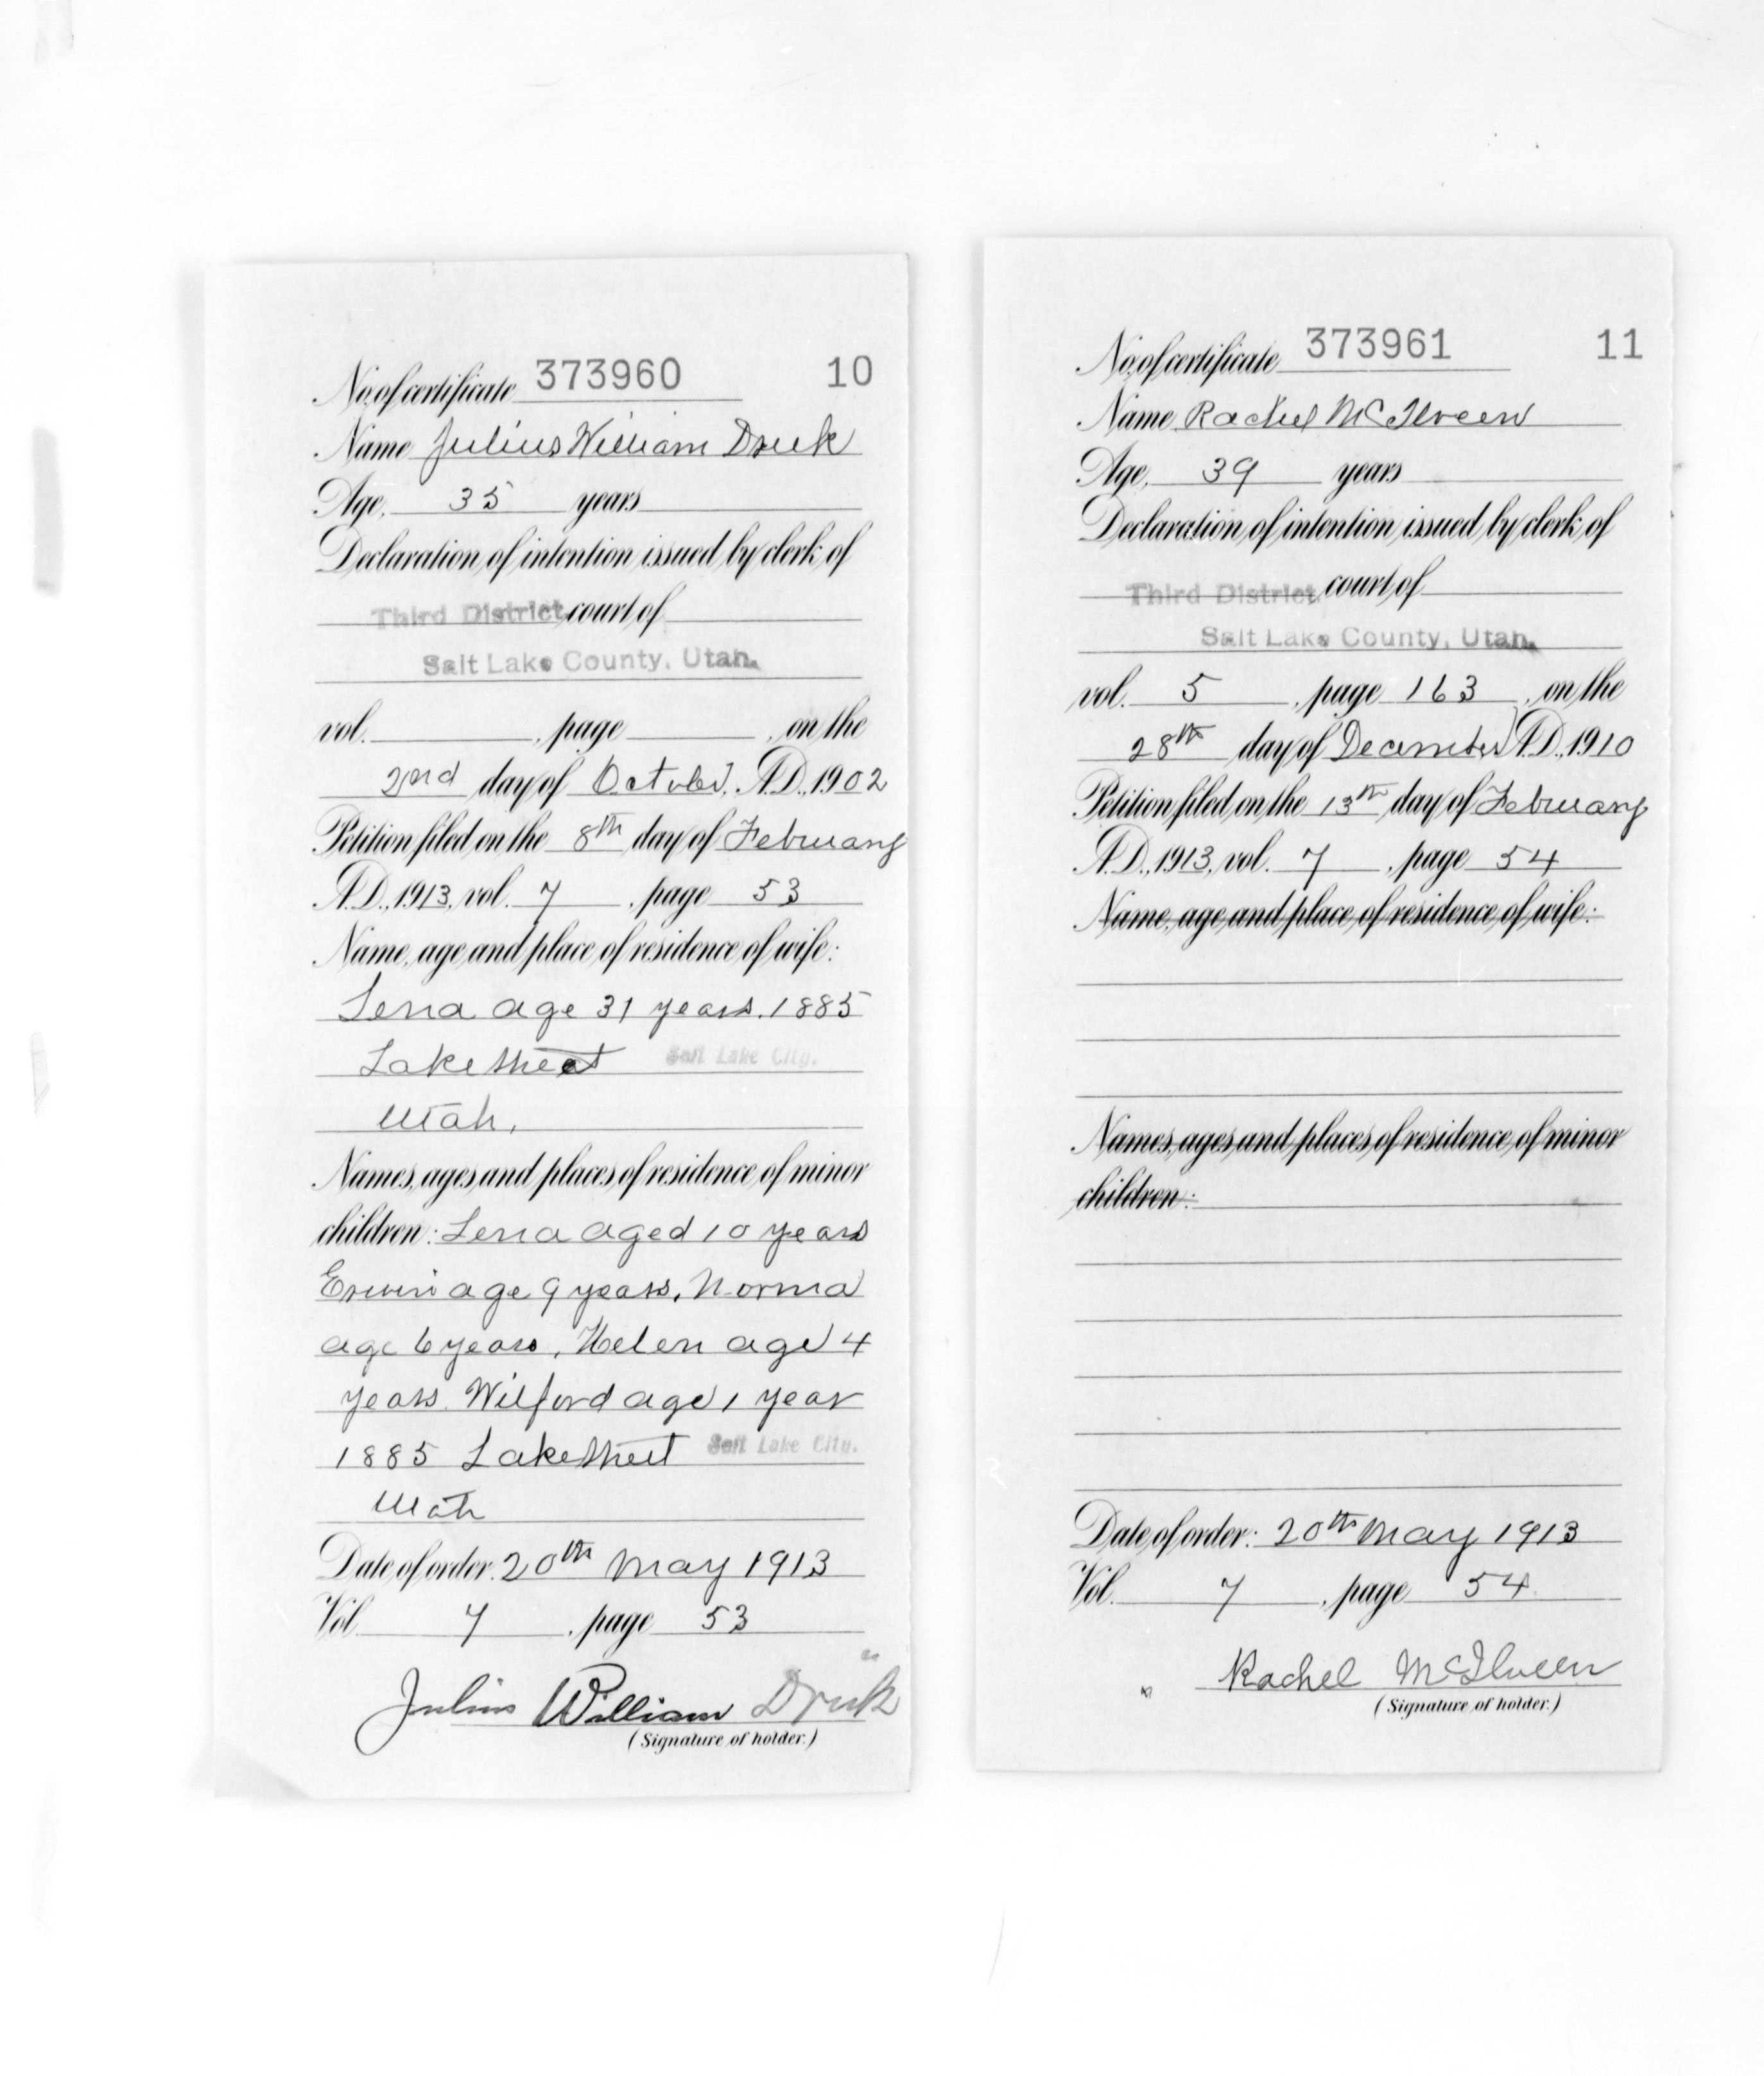 No. of certificate 373960 10
Name Julius William Druk
Age, 35 years
Declaration of intention issued by clerk of
Third District court of
Salt Lake County, Utah.
vol. , page , on the
2nd day of October, A.D., 1902
Petition filed on the 8th day of February
A.D., 1913, vol. 7 , page 53
Name, age and place of residence of wife:
Lena age 31 years. 1885
Lake Street Salt Lake City.
Utah,
Names, ages and places of residence of minor
children: Lena aged 10 years
Erwin age 9 years, Norma
age 6 years, Helen age 4
years. Wilford age 1 year
1885 Lake Street Salt Lake City.
Utah
Date of order: 20th May 1913
Vol. 7 , page 53
Julius William Druk
(Signature of holder.)
No. of certificate 373961 11
Name Rachel McIlveen
Age, 39 years
Declaration of intention issued by clerk of
Third District court of
Salt Lake County, Utah.
vol. 5 , page 163 , on the
28th day of December A.D., 1910
Petition filed on the 13th day of February
A.D., 1913, vol. 7 , page 54
Name, age and place of residence of wife:
Names, ages and places of residence of minor
children:
Date of order: 20th May 1913
Vol. 7 , page 54
Rachel McIlveen
(Signature of holder.)